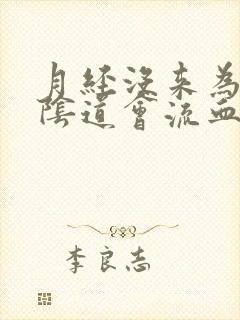 月經沒來為
陰道會流血
李良志